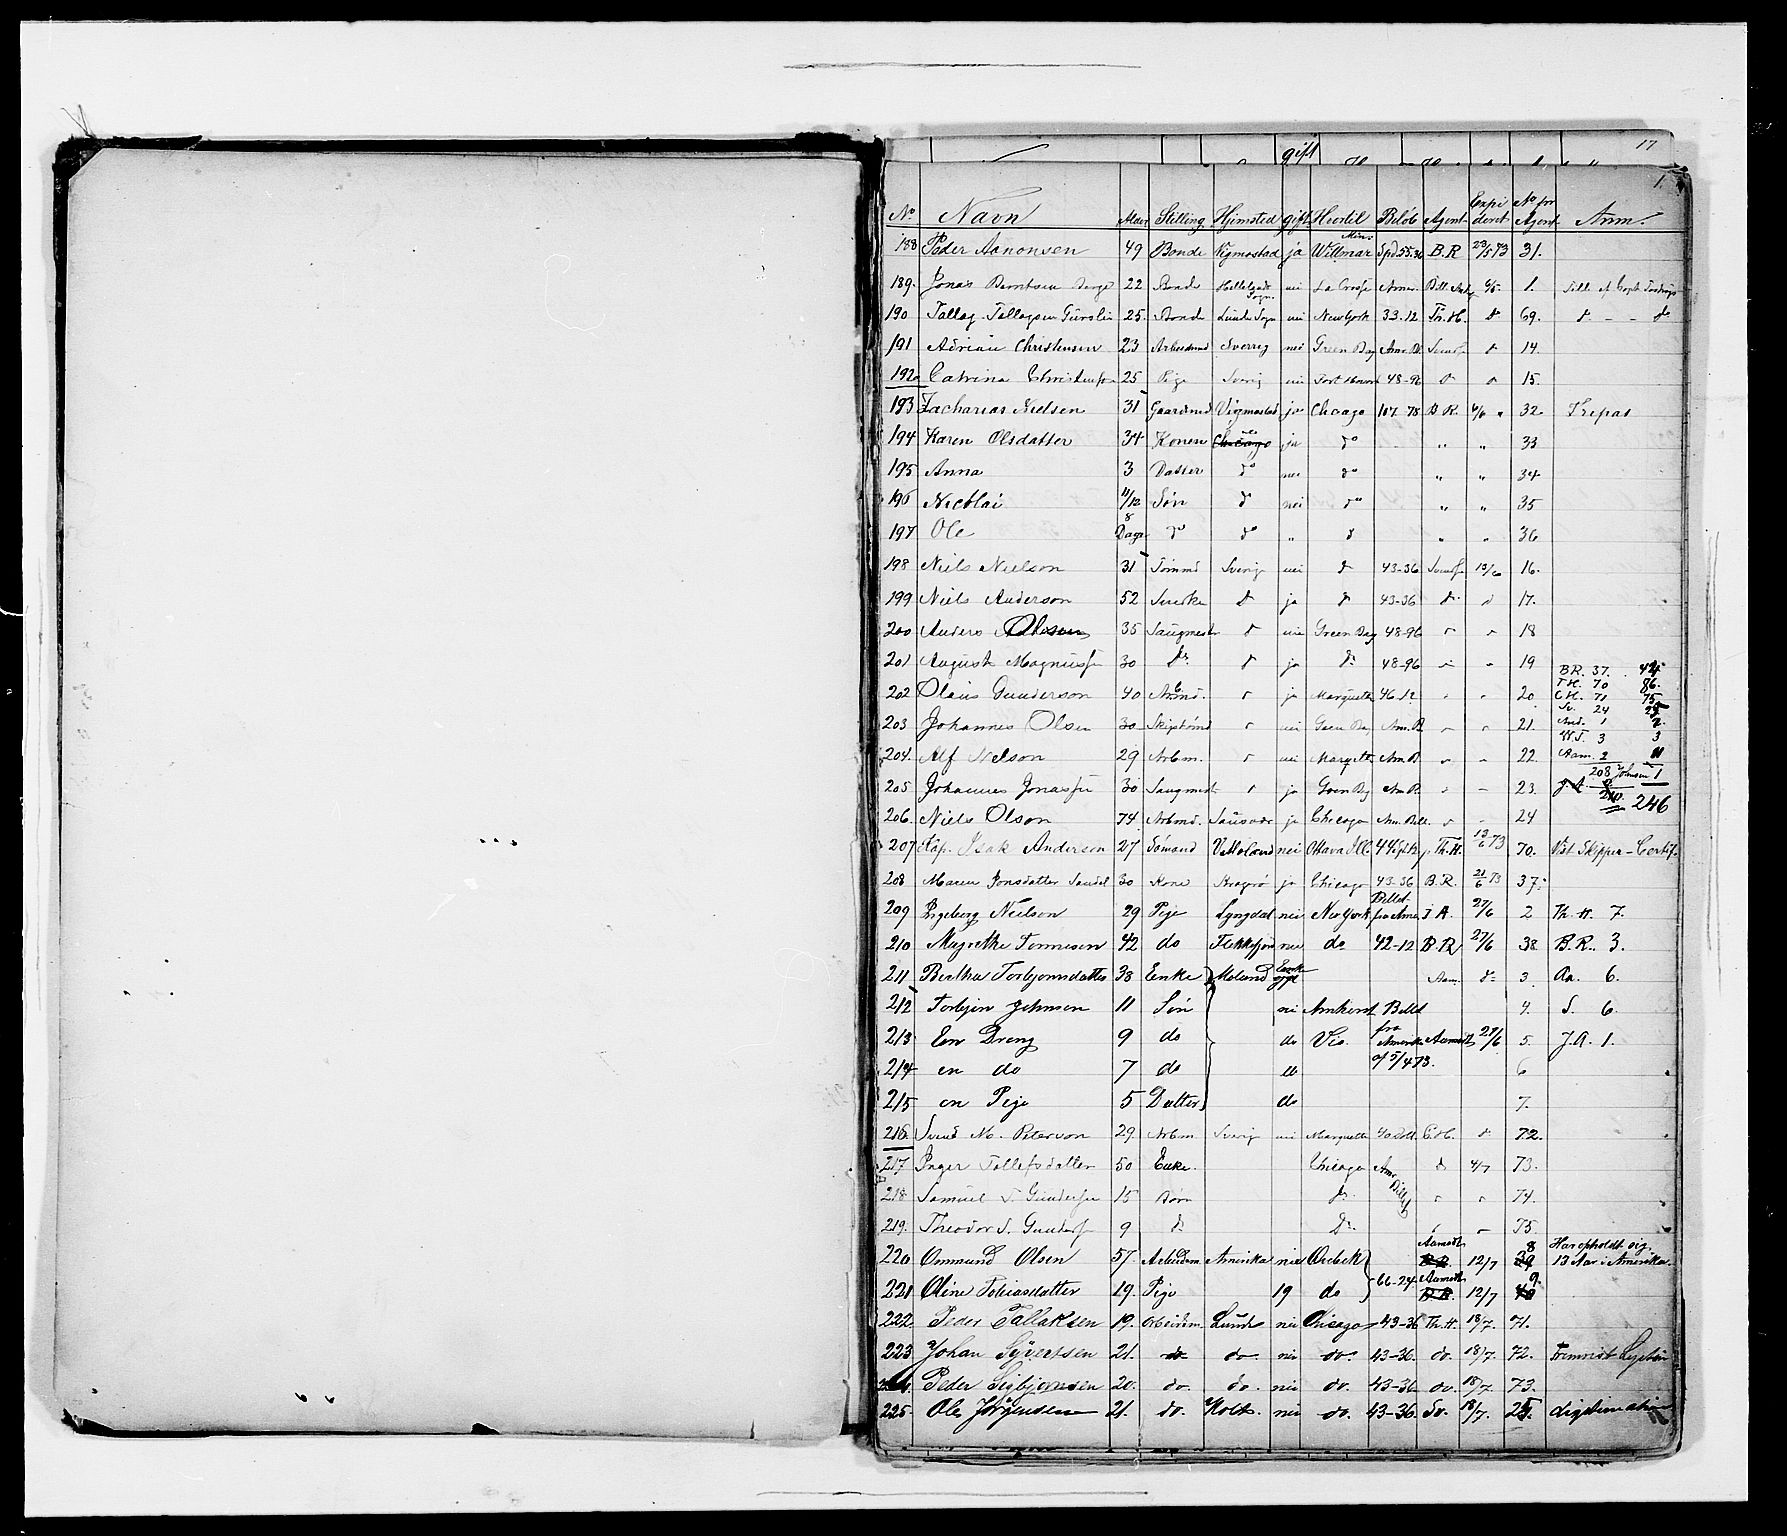 17
gift
1.
No Navn Alder Stilling Hjemsted gift Hvortil Beløb Agent Expederet No for Agent Anm.
188 Peder Aanonsen 49 Bonde Vigmostad ja Willmar Min: Spd 55.36 B.R 23/5 73 31.
189. Jonas Berntsen 22 Bonde nei La Crosse Amer. 1.
190 Tallag Tallagsen 25. Bonde Lunde Sogn nei New York 33.12 Th.H. d 69. d - - d
191 Adrian Christensen 23 Arbeidsmd Sverrig nei Green Bay d 14.
192 Catrina 25 Pige Sverig nei 48-96 d d 15.
193 Zacharias Nielsen 31 Gaardmd Vigmostad ja Chicago 107-78 B.R. 4/6 " 32. Trepas
194 Karen Olsdatter 34 Konen Chicago ja do " " 33
195 Anna 3 Datter do nei do " " 34
196 Nicolai 11/12 Søn d nei do " " 35
197 Ole 8 Dage do do " d " " 36
198 Niels Nielson 31 Tømmd Sverig nei d 43-36 13/6 16.
199 Niels Anderson 52 d ja d 43-36 d d 17.
200 Anders Olson 35 Saugmest d nei Green Bay 48-96 " " 18
201 August 30 do d ja do 48-96 " " 19
BR. 37. 42
202 Olaus Gunderson 40 Arbmd. " ja Marquette 46-12 " " 20
T.H. 70 86
C.H. 71 75
Sv. 24 25
203 Johannes Olsen 30 " nei Green Bay Am.B " " 21.
And. 1 2
W.T. 3 3
204. Alf Nelson 29 Arbm. " nei Marquette Am.B " " 22
Aam. 2 11
208 Johnsen 1
205 Johannes 30 Saugmest " ja Green Bay Am B. " - 23.
J.A. 2 210 246
206. Niels Olson 74 Arbmd. ja Chicago Am. Bill. " - 24
207 Cap. Isak Anderson 27 Sømand nei Ottava Ill. Th.H. 13/6-73 70. Vist Skipper-Certif.
208 Maren Jonsdatter 30 Kone Kragerø ja Chicago 43-36 B.R. 21/6 73 37.
209 Ingeborg Nielson 29 Pige Lyngdal nei New York Billet fra Amr. J A. 27/6 2 Th. H. 7.
210 Magrethe Tonnesen 42 do Flekkefjor nei do 42-12 B.R. 27/6 38. B.R. 3.
211 Bertha Torbjornsdatter 38 Enke Moland Enke gift Aam. do 3. Aa. 6.
212 Torbjøn Johnson 11 Søn nei Amherst Billet 4. S. 6.
213 En Dreng 9 do do Vis. fra Amerika Aamodt 27/6 5. J.A. 1.
214 en do 7 do do af 5/4 73. 6
215 en Pige 5 Datter do 7.
216. Svend M. Peterson 29. Arbm Sverig nei Marquette 40 Doll. C.H. d. 72.
217. Inger Tollefsdatter 50 Enke. Chicago Am. Billet d 4/7 73.
218. Samuel T. Gundersen 15 Børn do. " " 74.
219. Theodor T. 9 do do. " - 75.
220 Ommund Olsen 57. Arbeidsm Amerika nei Aamodt B.R. 12/7 39 8 Har opholdt sig 13 Aar i Amerika.
221 Oline Tobiasdatter 19. Pige 19 do 66-24 Aamodt B.R. 12/7 40 9.
222. Peder Tallaksen 19. Arbeidsm. Lunde nei Chicago 43-36 Th.H. 18/7. 71.
223 Johan Syvertsen 21. do do. nei do. 43-36. do. 18/7. 72.
224. Peder Sigbjørnsen 20. do. do. nei do. 43-36 do. 18/7. 73.
225. Ole Jørgensen 21. do. Holt. nei do. 43-36. Sv. 18/7. 25.